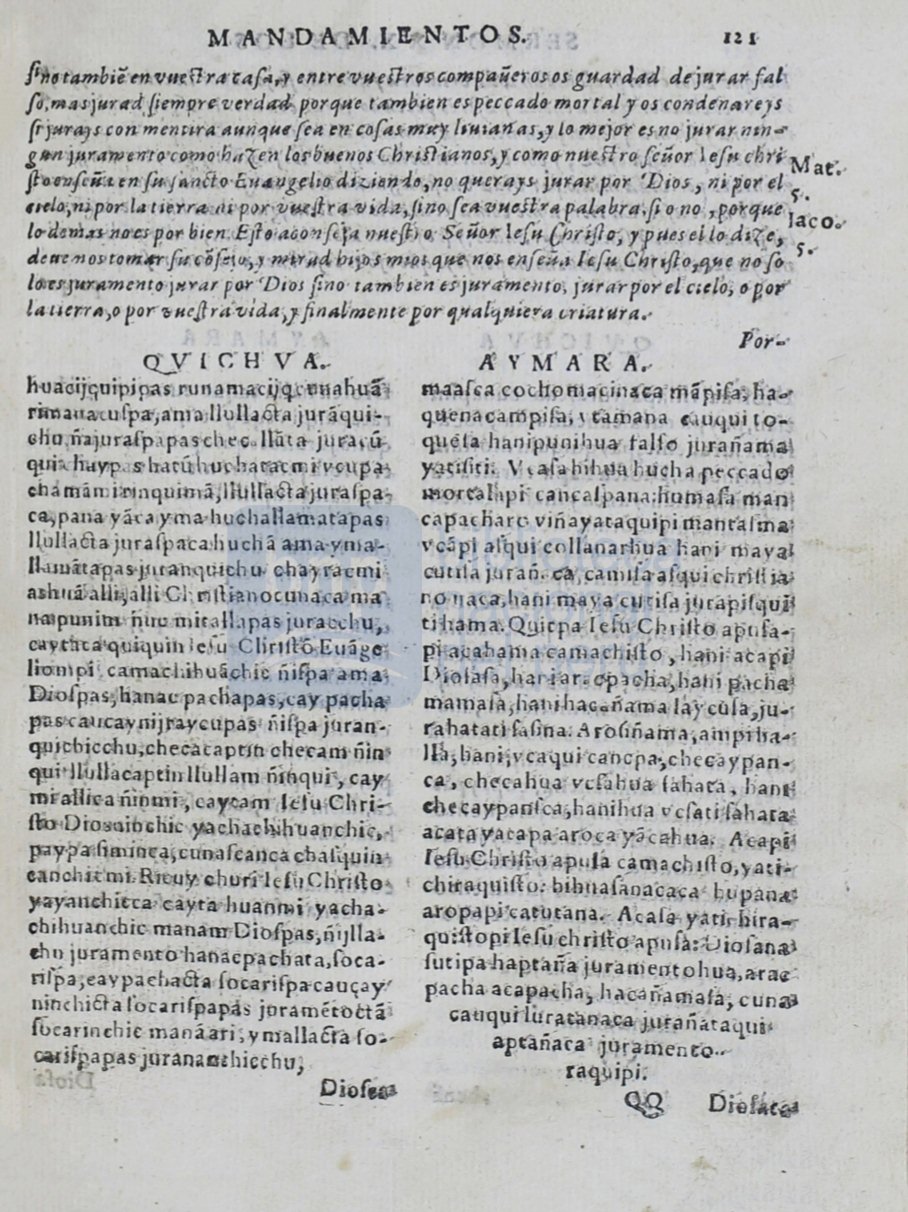 MANDAMIENTOS. 121
sino tambiē en vuestra casa, y entre vuestros compañeros os guardad de jurar fal
so, mas jurad siempre verdad porque tambien es peccado mortal y os condenareys
si jurays con mentira aunque sea en cosas muy liuianas, y lo mejor es no jurar nin-
gun juramento como hazen los buenos Christianos, y como nuestro señor Iesu chri
sto enseña en su sancto Euangelio diziendo, no querays jurar por Dios, ni por el
cielo, ni por la tierra ni por vuestra vida, sino sea vuestra palabra si o no, porque
lo demas no es por bien. Esto aconseja nuestro Señor Iesu Christo, y pues el lo dize,
deuenos tomar su cōsejo, y mirad hijos mios que nos enseña Iesu Christo, que no so
lo es juramento jurar por Dios sino tambien es juramento, jurar por el cielo, o por
la tierra, o por vuestra vida, y finalmente por qualquiera criatura.
Mat.
5.
Iaco.
5.
Por-
QVICHVA.
huacijquipipas runamacijqcunahuā
rimanacuspa, ama llullacta jurāqui-
chu, ñajuraspapas checallāta juracū
qui haypas hatū huchatacmi vcupa
chamāmi rinquimā, llullacta juraspa-
ca, pana yāca yma huchallamatapas
llullacta juraspaca huchā ama yma-
llamātapas juranquichu chayracmi
ashuā alli, alli Christianocunaca ma
naipunim ñuc mitallapas juracchu,
caytaca quiquin Iesu Christo Euāge
liompi camachihuāchic ñispa ama
Diospas, hanac pachapas, cay pacha
pas caucayñijraycupas ñispa juran-
quichicchu, checacaptin checam ñin
qui llullacaptin llullam ñinqui, cay
mi allica ñinmi, caytam Iesu Chri-
sto Diosninchic yachachihuanchic,
paypa siminca, cunascanca chasquin
canchicmi. Ricuy churi Iesu Christo
yayanchicca cayta huanmi yacha-
chihuanchic manam Diospas, ñijlla-
chu juramento hanacpachata, soca-
rispa, caypachacta socarispa cauçay
ninchicta socarispapas juramētoctā
socarinchic manāari, ymallacta so-
carispapas juranancchicchu,
Diosca
AYMARA.
maasca cochomacinaca māpisa, ha-
quenacampisa, vtamana cauqui to-
quesa hanipunihua falso jurañama
yatisiti. Vcasa hihua hucha peccado
mortalapi cancaspana: humasa man
capacharo viñayataquipi mantasma
vcāpi asqui collanarhua hani maya
cutisa jurañ. ca, camisa asqui christia
no naca, hani maya cutisa jurapisqui
ti hama. Quicpa Iesu Christo apusa-
pi acahama camachisto, hani acapi
Diosasa, hani ar. cpacha, hani pacha
mamasa, hani hacañama laycusa, ju-
rahatati sasina. Arosiñama, ampi ha-
lla, hani, vcaqui cancpa, checaypan-
ca, checahua vcsahua sahata, hani
checaypansca, hanihua vcsati sahata
acata yatapa aroca yācahua. Acapi
Iesu Christo apusa camachisto, yati-
chiraquisto: hihuasanacaca hupana
aropapi catutana. Acasa yatichira-
quistopi Iesu christo apusa: Diosana
sutipa haptaña juramentohua, arac
pacha acapacha, hacañamasa, cuna
cauqui luratanaca jurañataqui
aptañaca juramento
raquipi.
QQ Diosata